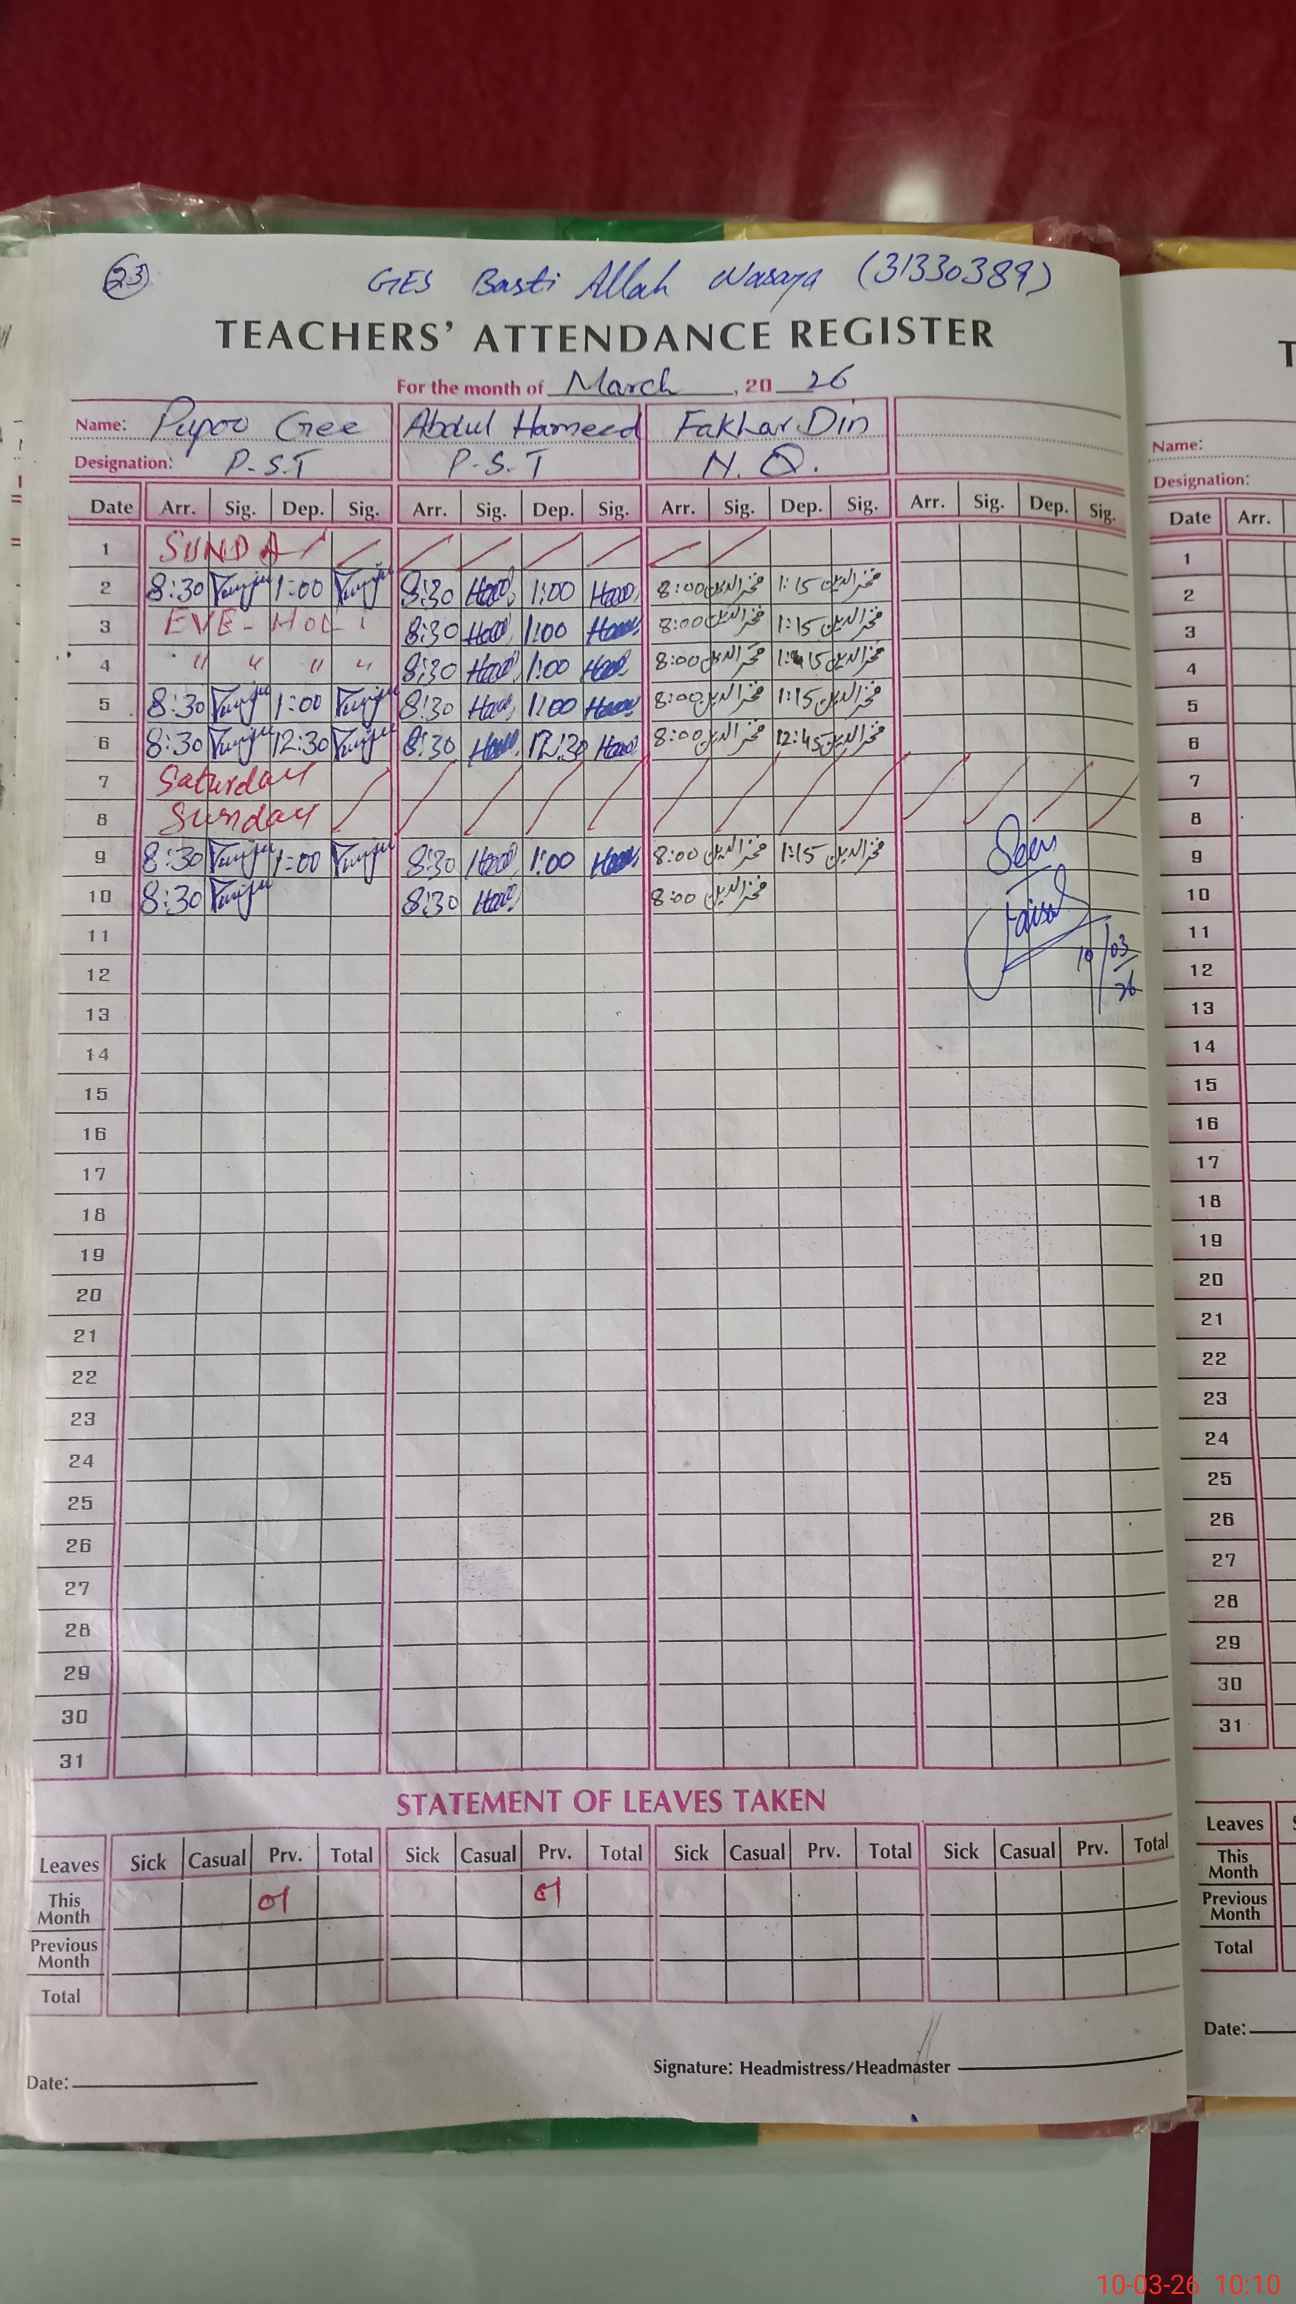 23
GES Basti Allah Wasaya (31330389)
TEACHERS' ATTENDANCE REGISTER
For the month of March, 20 26
Name: Pupoo Gee Abdul Hameed Fakhar Din
Designation: P.S.T P.S.T N.Q.
Date Arr. Sig. Dep. Sig. Arr. Sig. Dep. Sig. Arr. Sig. Dep. Sig. Arr. Sig. Dep. Sig.
1 SUNDA
2 8:30 1:00 8:30 1:00 8:00 فخرالدین 1:15 فخرالدین
3 EVE-HOL 8:30 1:00 8:00 فخرالدین 1:15 فخرالدین
4 " " " " 8:30 1:00 8:00 فخرالدین 1:15 فخرالدین
5 8:30 1:00 8:30 1:00 8:00 فخرالدین 1:15 فخرالدین
6 8:30 12:30 8:30 12:30 8:00 فخرالدین 12:45 فخرالدین
7 Saturday
8 Sunday
9 8:30 1:00 8:30 1:00 8:00 فخرالدین 1:15 فخرالدین Seen
10 8:30 8:30 8:00 فخرالدین Faisal
11 10/03/26
12
13
14
15
16
17
18
19
20
21
22
23
24
25
26
27
28
29
30
31
STATEMENT OF LEAVES TAKEN
Leaves Sick Casual Prv. Total Sick Casual Prv. Total Sick Casual Prv. Total Sick Casual Prv. Total
This Month 01 01
Previous Month
Total
Signature: Headmistress/Headmaster
Date:
T
Name:
Designation:
Date Arr.
1
2
3
4
5
6
7
8
9
10
11
12
13
14
15
16
17
18
19
20
21
22
23
24
25
26
27
28
29
30
31
Leaves S
This Month
Previous Month
Total
Date:
10-03-26 10:10